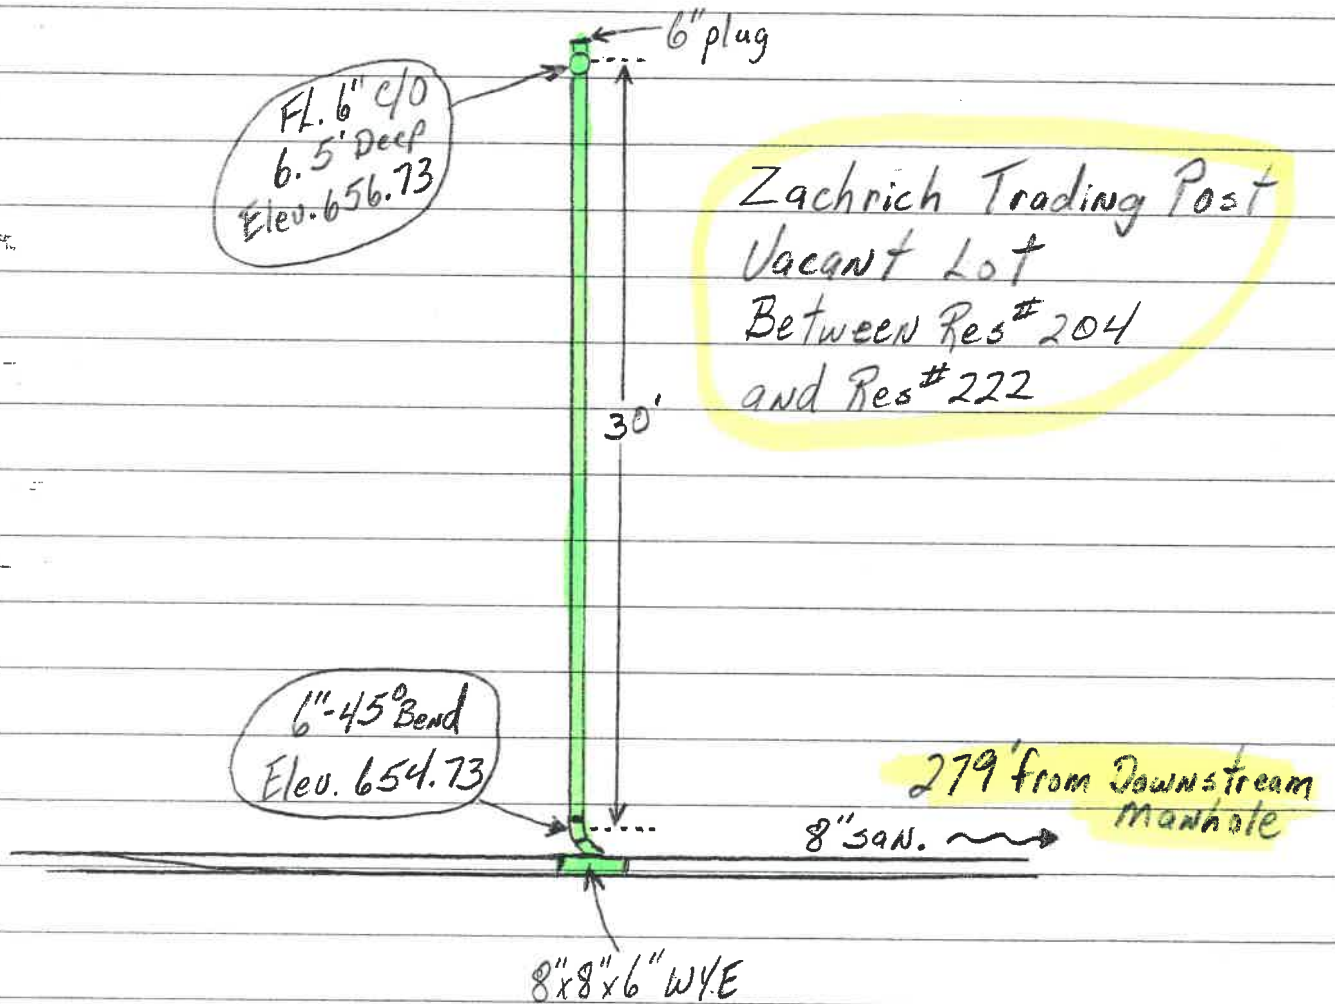 6" plug
FL. 6" C/O
6.5' Deep
Elev. 656.73
Zachrich Trading Post
Vacant Lot
Between Res# 204
and Res# 222
30'
6"-45° Bend
Elev. 654.73
279' from Downstream
Manhole
8" SAN.
8"x8"x6" WYE